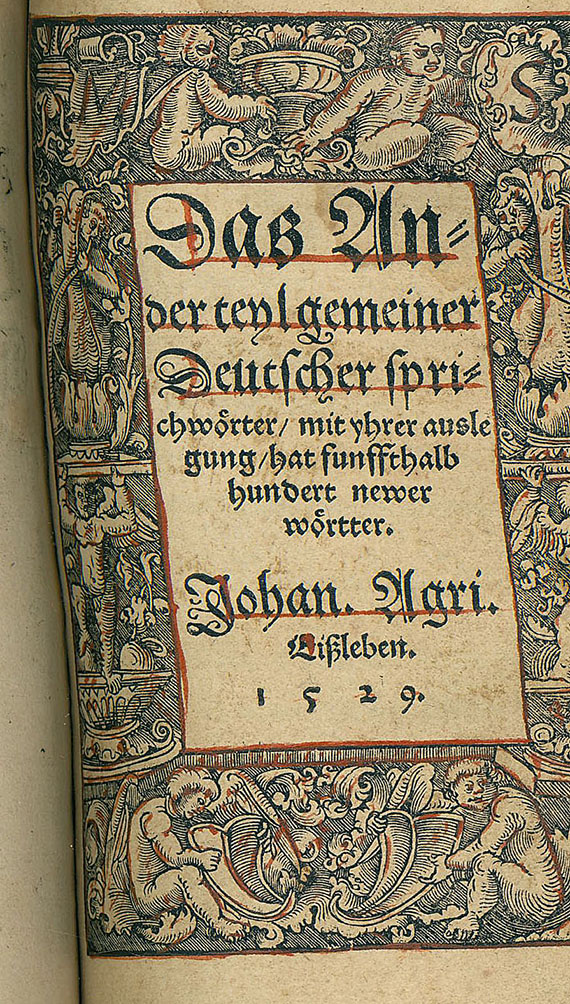 M
S
Das An⸗
der teyl gemeiner
Deutscher spri⸗
chwoͤrter/ mit yhrer ausle
gung/hat funffthalb
hundert newer
woͤrtter.
Johan. Agri.
Eißleben.
1529.